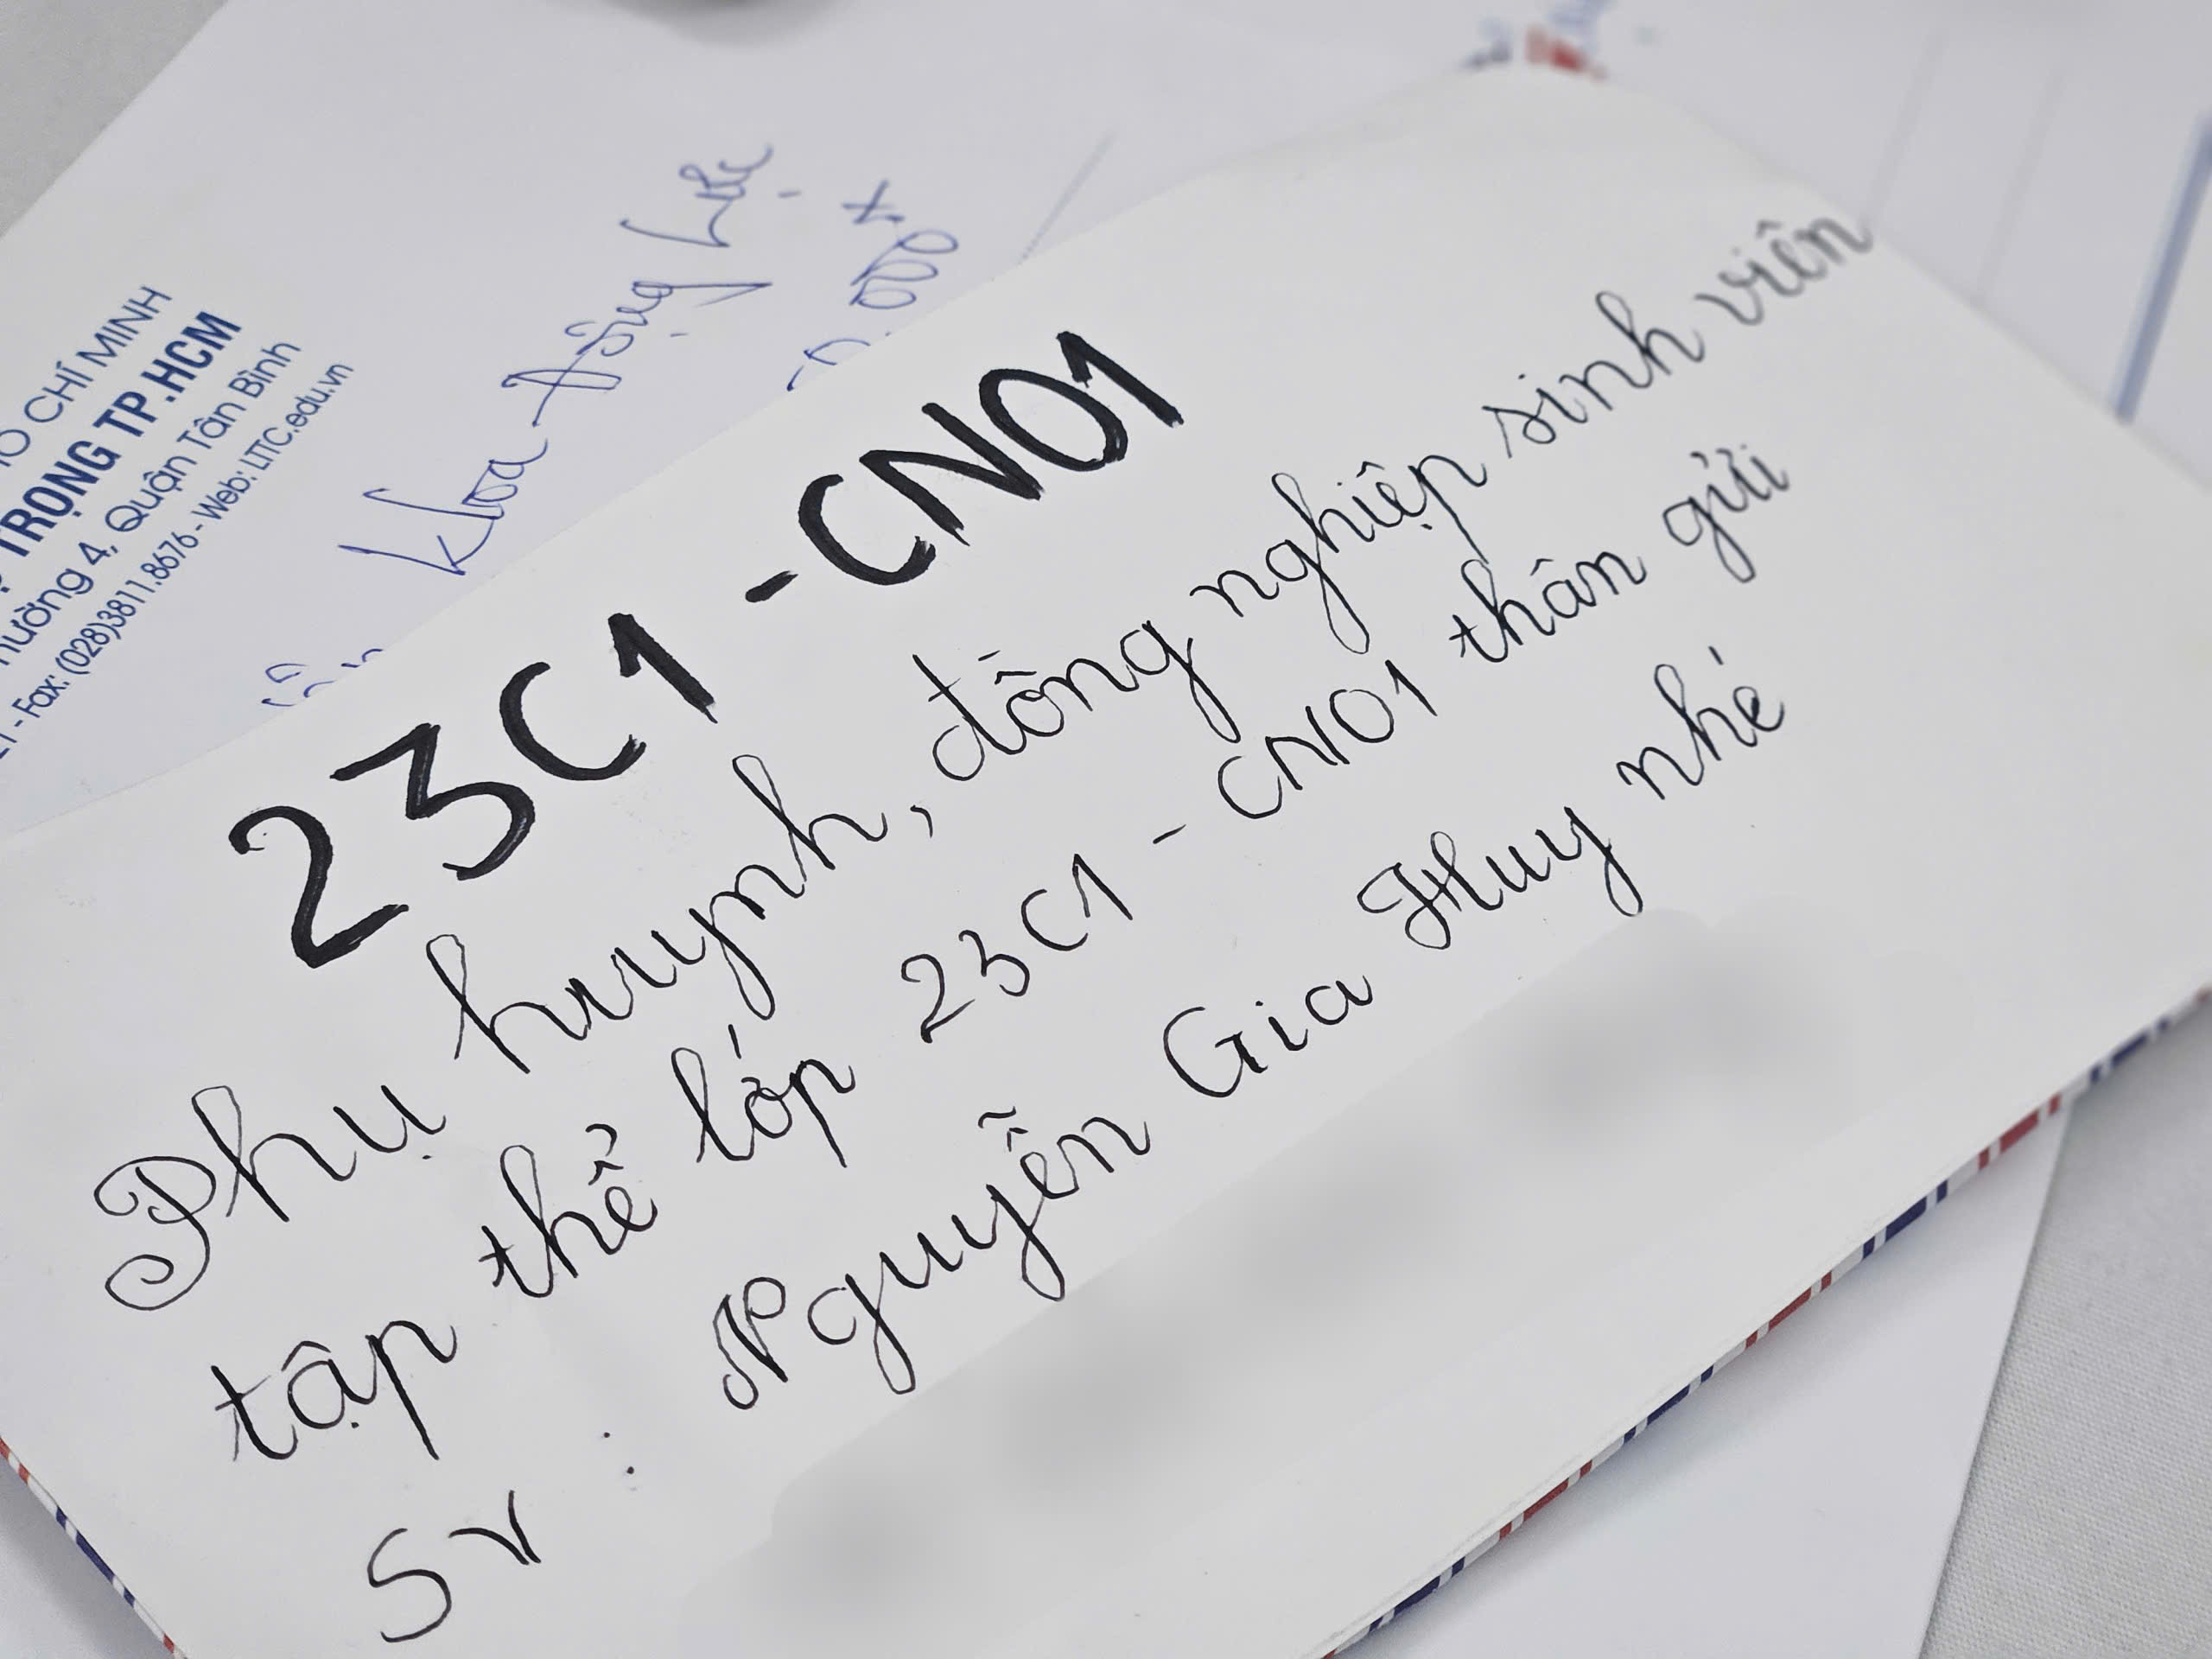 HỒ CHÍ MINH
TRỌNG TP.HCM
Phường 4, Quận Tân Bình
- Fax: (028)3811.8676 - Web: LTTC.edu.vn
Khoa Động Lực
23C1 - CN01
Phụ huynh, đồng nghiệp sinh viên
tập thể lớp 23C1 - CN01 thân gửi
SV : Nguyễn Gia Huy nhé